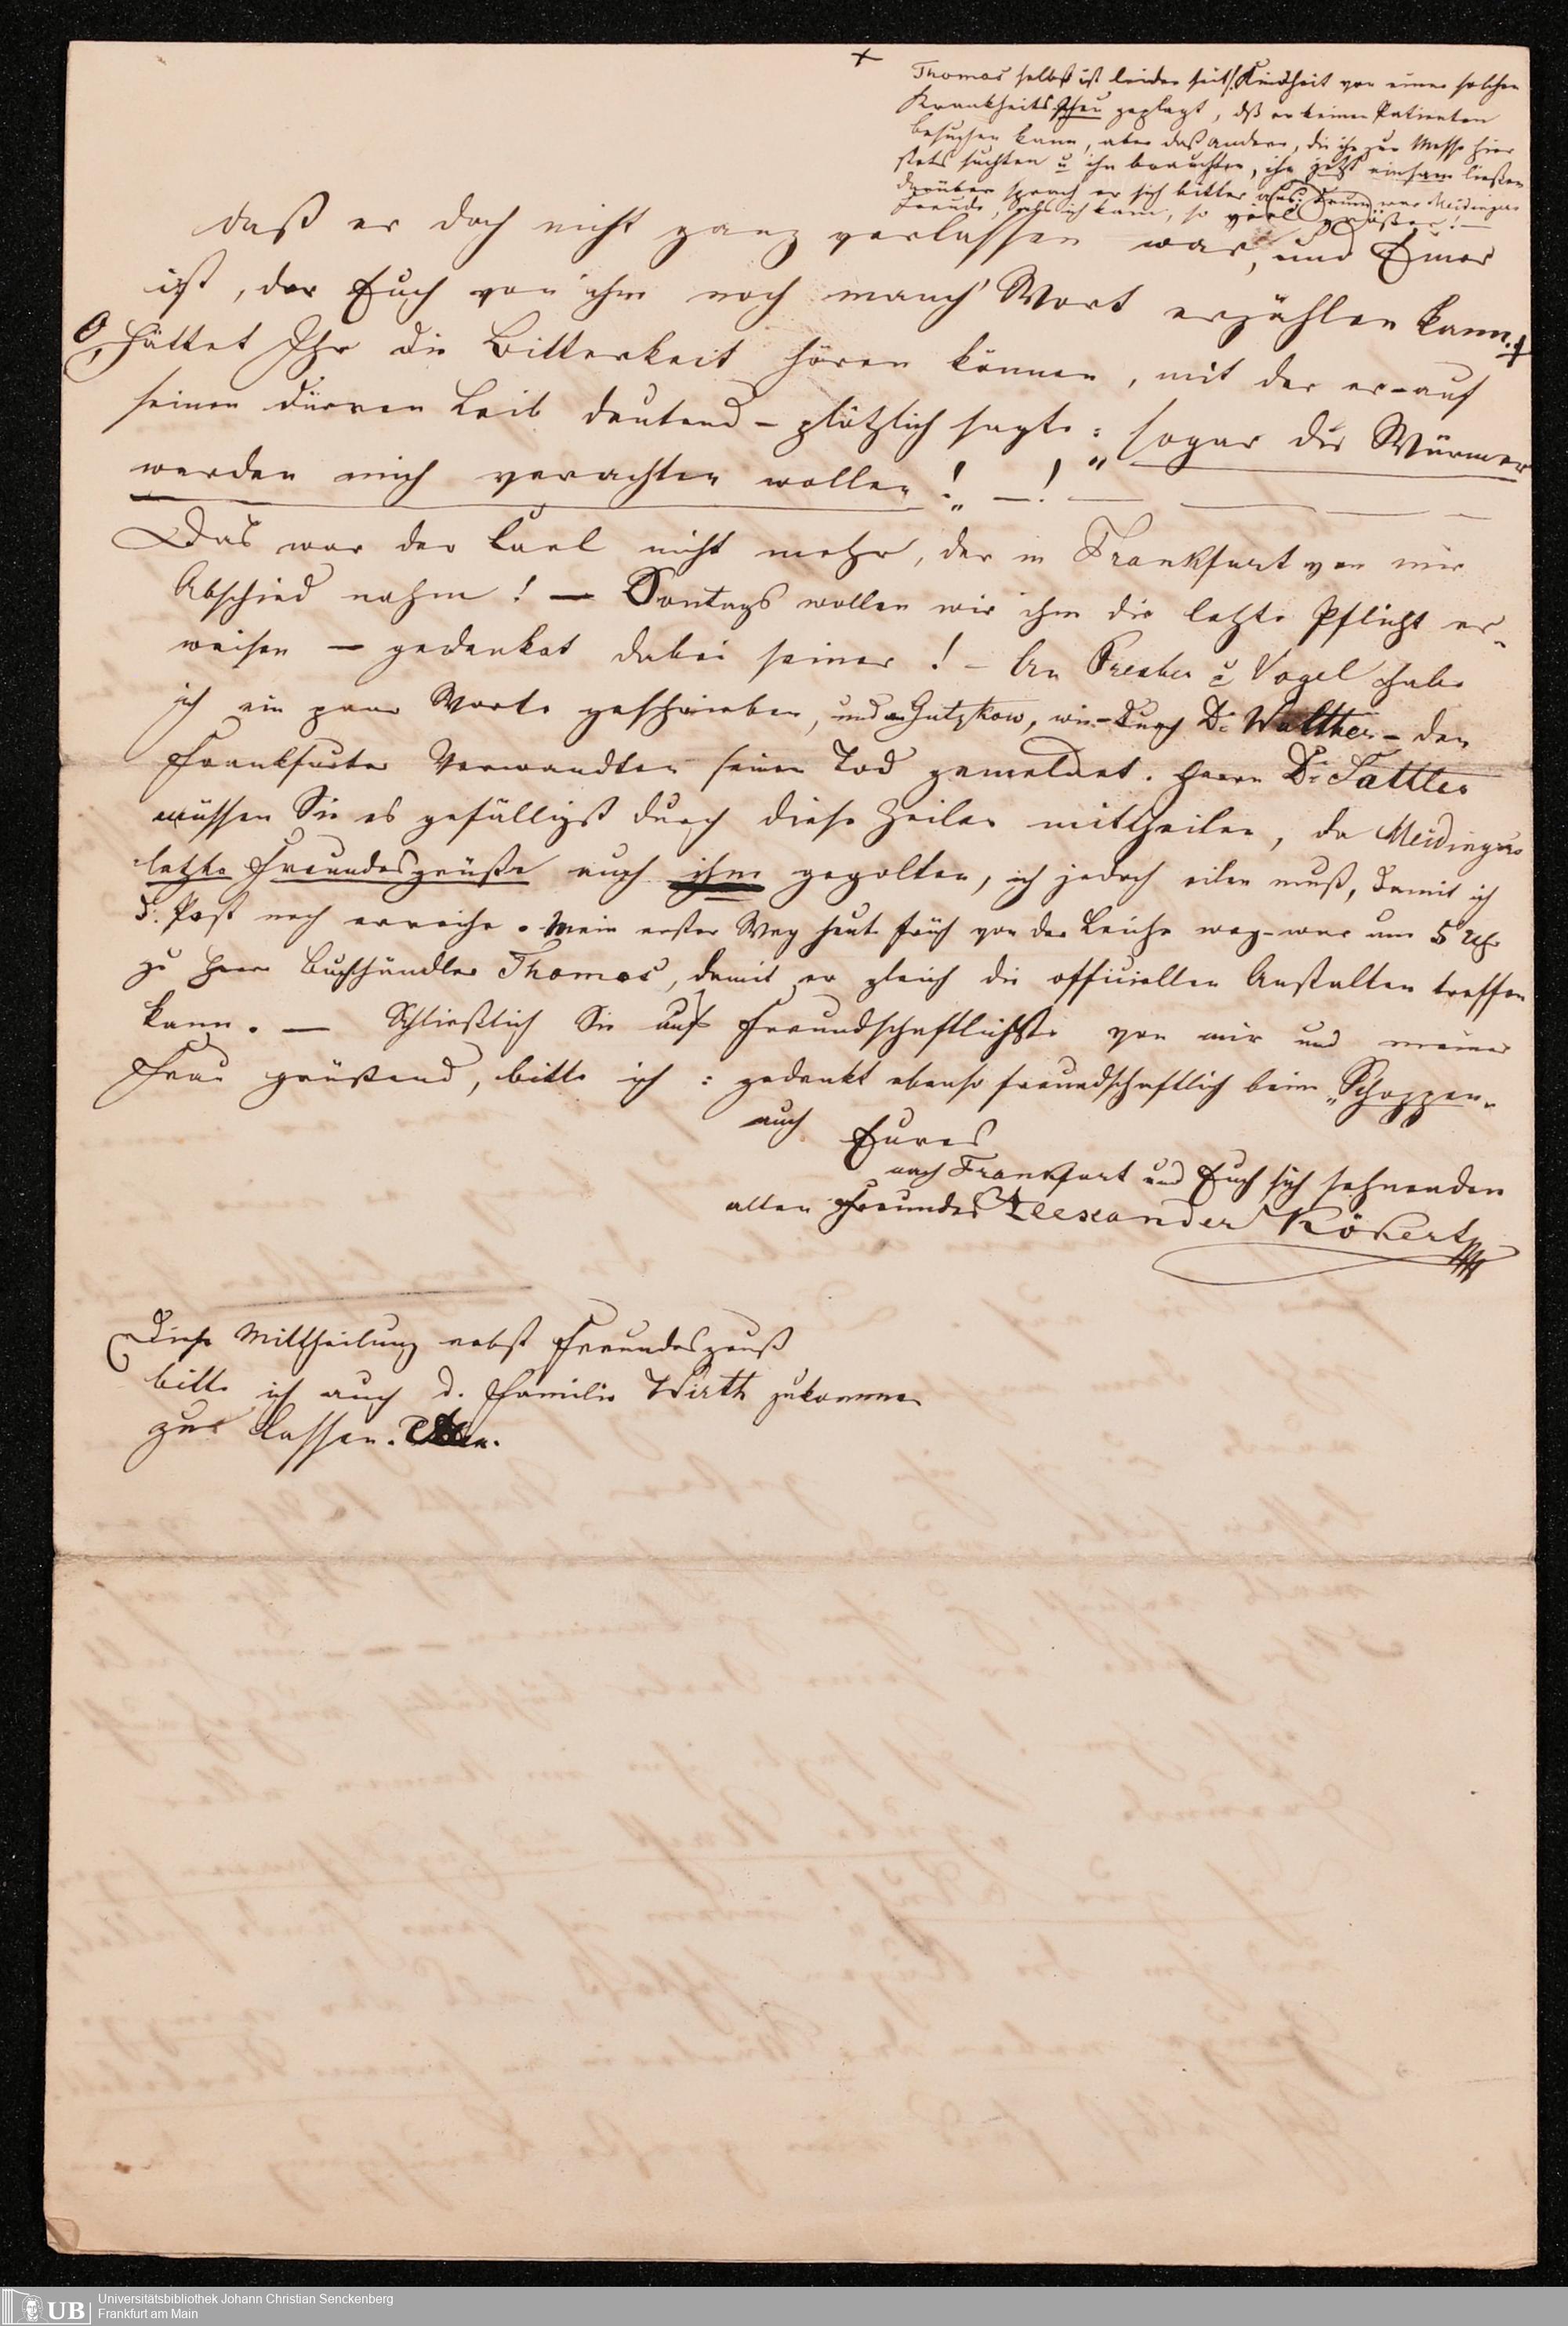 + Thomas selbst ist leider seit d. Kindheit von einer solchen
Krankheitsscheu geplagt, dß er keinen Patienten
besuchen kann, aber daß andere, die ihn zur Messe hier
stets suchten u ihn brauchten, ihn jetzt einsam ließen
darüber sprach er sich bitter aus; drum war Meidingers
Freude, als ich kam, so viel größer! —
daß er doch nicht ganz verlassen war, und Einer
ist, der Euch von ihm noch manch' Wort erzählen kann. +
O, hättet Ihr die Bitterkeit hören können, mit der er – auf
seinen dürren Leib deutend – plötzlich sagte: „sogar die Würmer
werden mich verachten wollen!" — ! —
Das war der Carl nicht mehr, der in Frankfurt von mir
Abschied nahm! — Sontags wollen wir ihm die letzte Pflicht er-
weisen — gedenket dabei seiner! – An u Vogel habe
ich ein paar Worte geschrieben, und an Gutzkow, wie – durch Dr. Walther – den
Frankfurter Verwandten seinen Tod gemeldet. Herrn Dr. Sattler
müssen Sie es gefälligst durch diese Zeilen mittheilen, da Meidingers
letzte Freundesgrüße auch ihm gegolten, ich jedoch eilen muß, damit ich
d. Post noch erreiche. Mein erster Weg heute früh von der Leiche weg – war um 5 Uhr
zu Herrn Buchhändler Thomas, damit er gleich die officiellen Anstalten treffen
kann. — Schließlich Sie aufs freundschaftlichste von mir und meiner
Frau grüßend, bitte ich: gedenkt ebenso freundschaftlich beim „Schoppen"
auch Eures
nach Frankfurt und Euch sich sehnenden
alten Freundes Alexander Rökert
Diese Mittheilung nebst Freundesgruß
bitte ich auch d. Familie Wirth zukommen
zu lassen.
UB Universitätsbibliothek Johann Christian Senckenberg
Frankfurt am Main